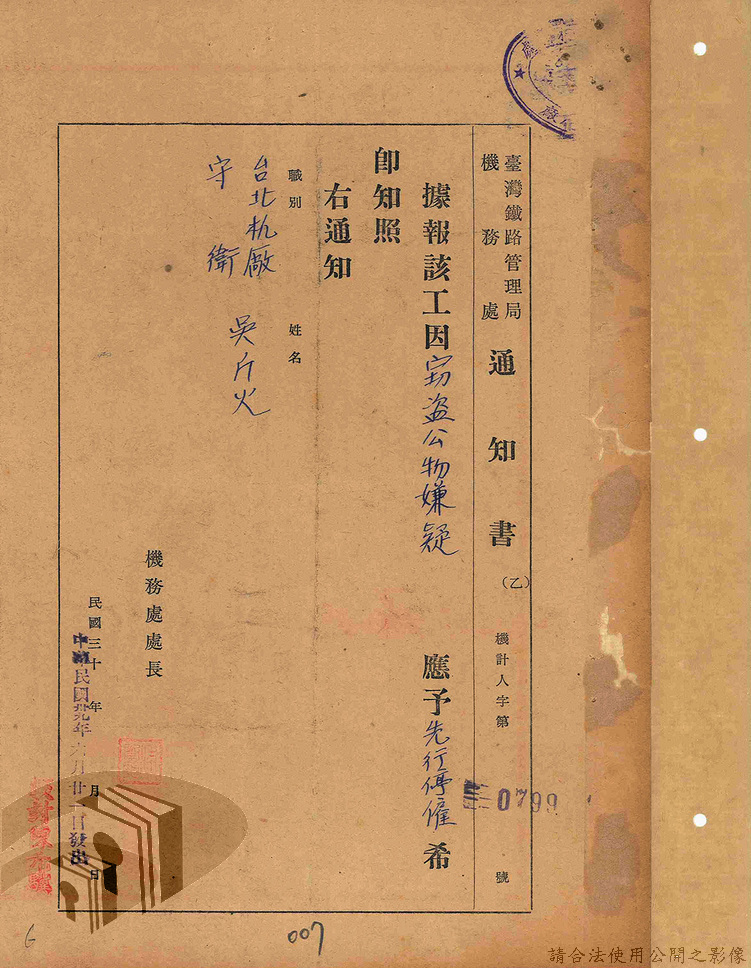 臺灣鐵路管理局
機務處
通知書(乙)
機計人字第 0799 號
據報該工因竊盗公物嫌疑 應予先行停僱希
即知照
右通知
職別 姓名
台北机廠
守衛 吳斤火
機務處處長
民國三十 年 月 日
民國卅九年六月廿 日發出
007
6
請合法使用公開之影像